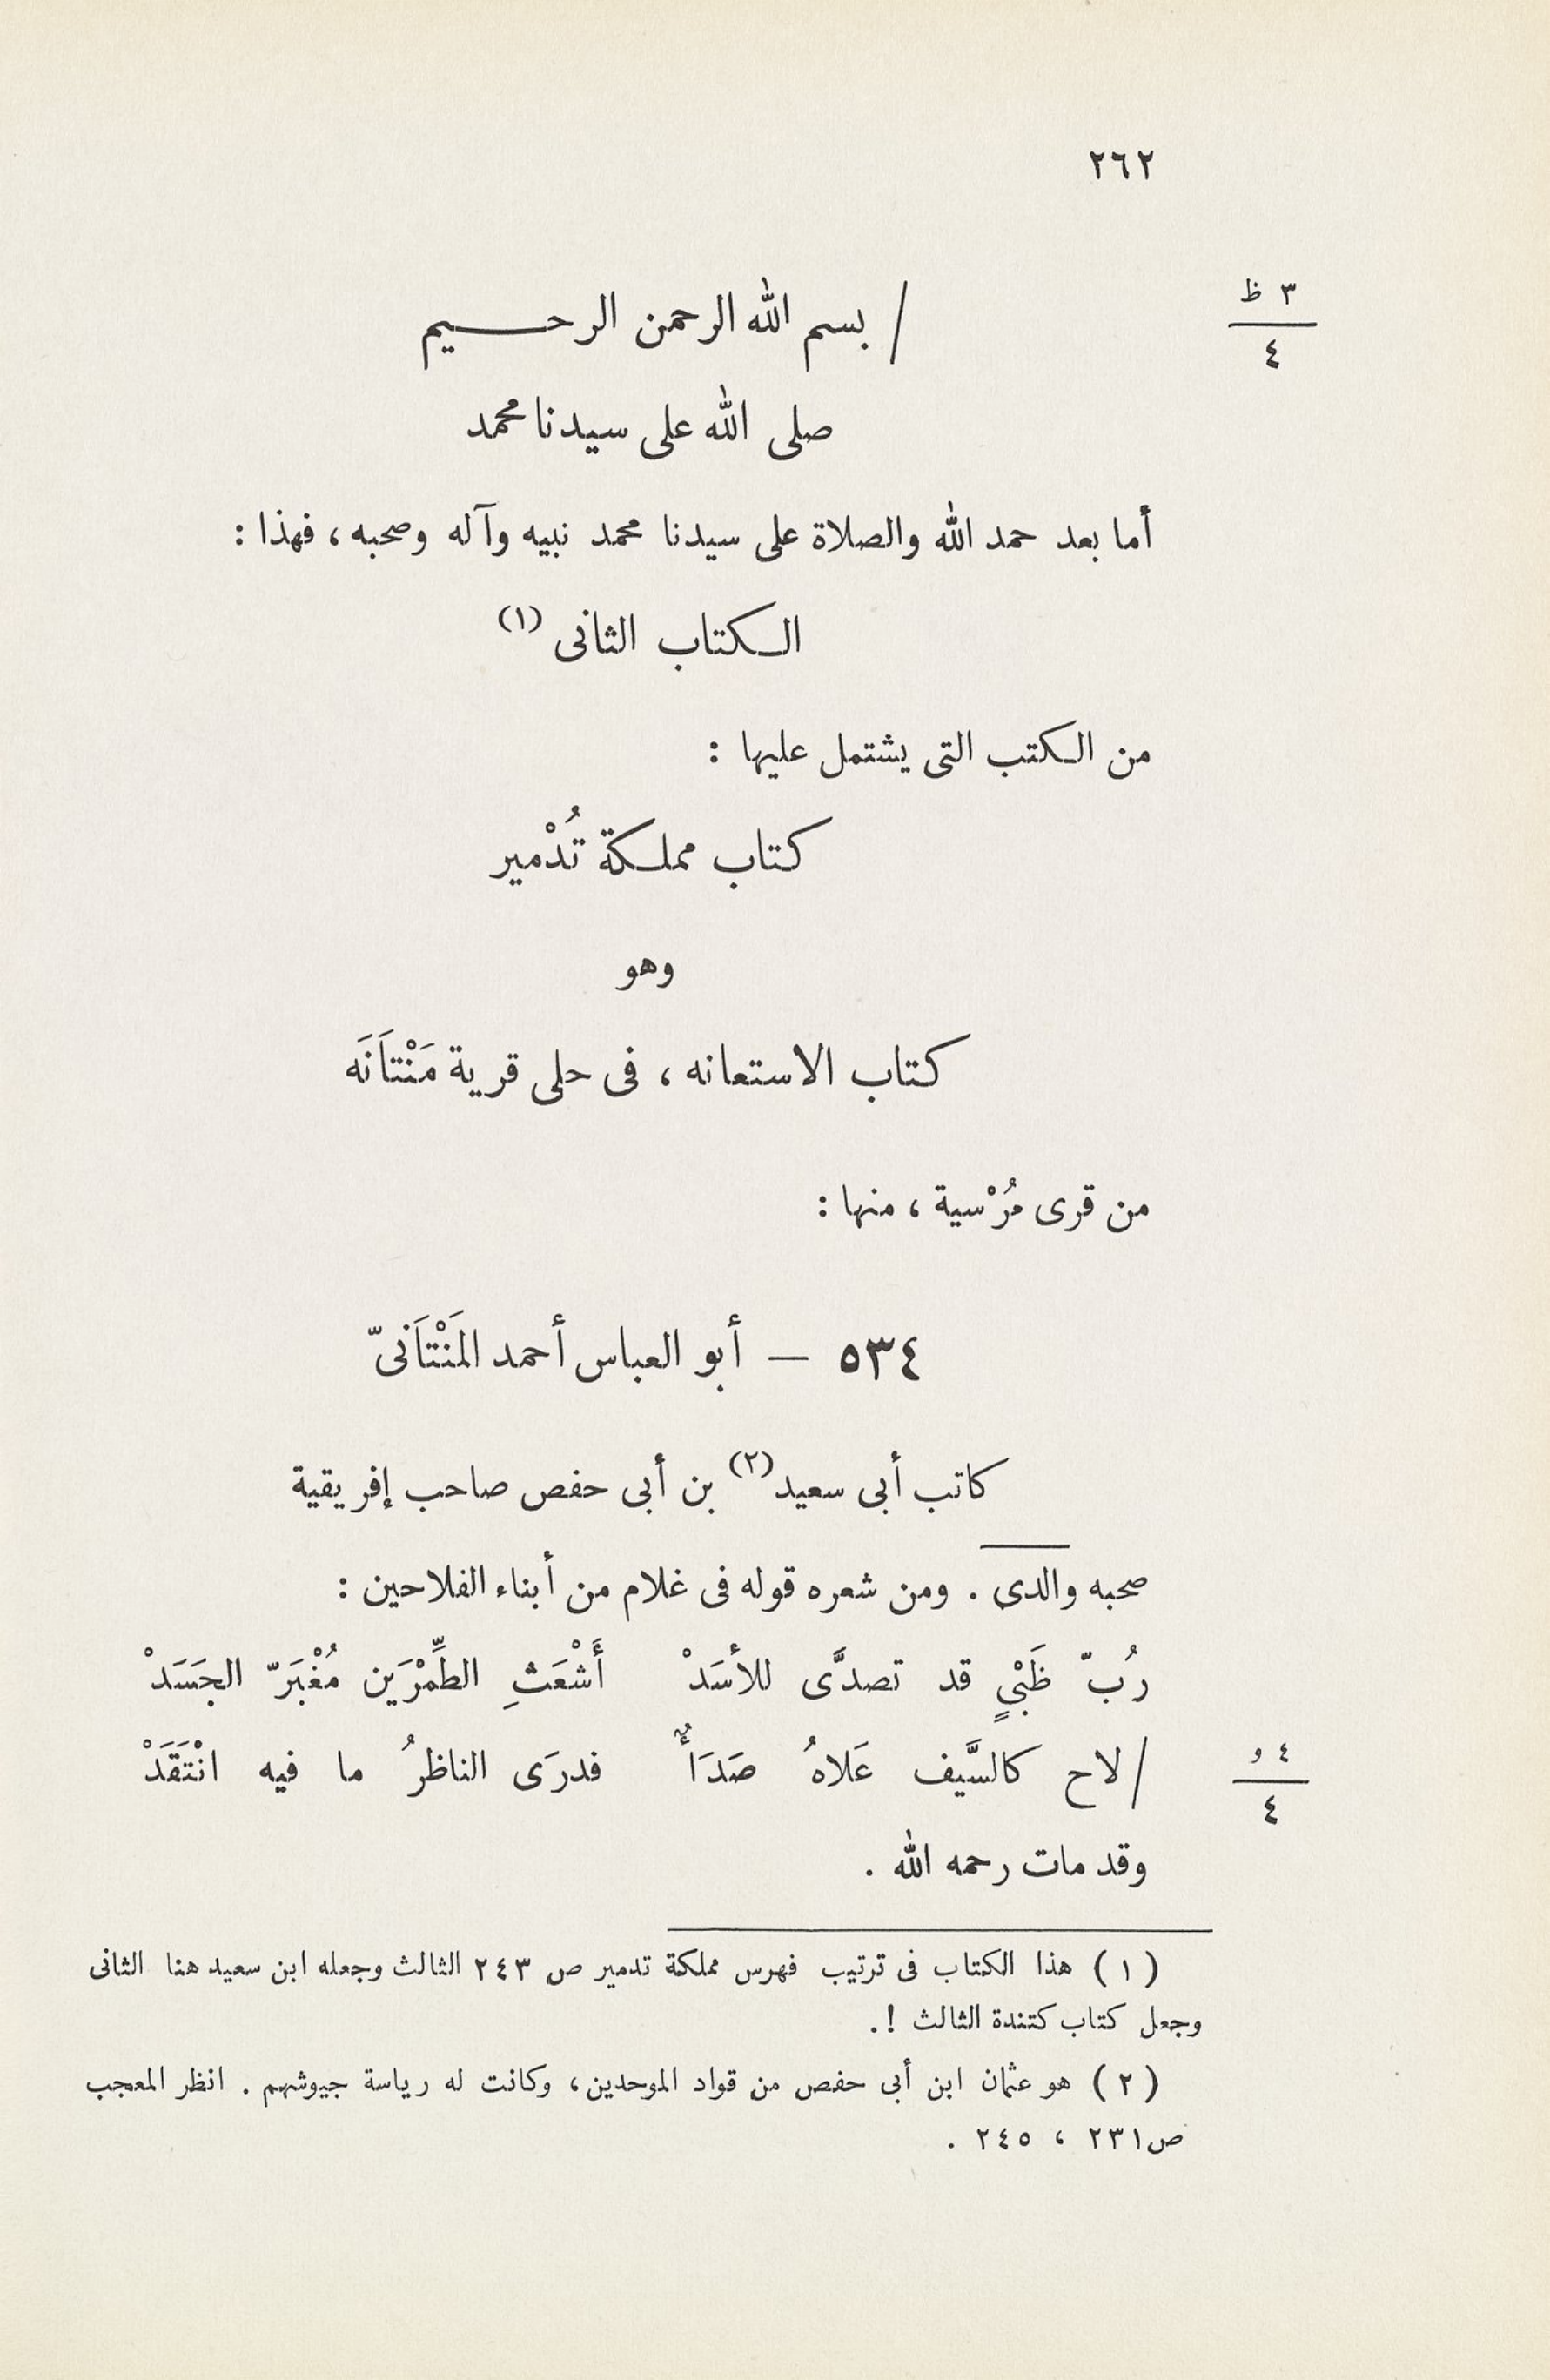 ٢٦٢
٣ ظ
٤
/ بسم الله الرحمن الرحـــيم
صلى الله على سيدنا محمد
أما بعد حمد الله والصلاة على سيدنا محمد نبيه وآله وصحبه ، فهذا :
الـكتاب الثانى (١)
من الـكتب التى يشتمل عليها :
كتاب مملـكة تُدْمير
وهو
كتاب الاستعانه ، فى حلى قرية مَنْتَانَه
من قرى مُرْسية ، منها :
٥٣٤ — أبو العباس أحمد المَنْتَانىّ
كاتب أبى سعيد (٢) بن أبى حفص صاحب إفريقية
صحبه والدى . ومن شعره قوله فى غلام من أبناء الفلاحين :
رُبّ ظَبْيٍ قد تصدَّى للأسَدْ أَشْعَثِ الطِّمْرَين مُغْبَرّ الجَسَدْ
/ لاح كالسَّيف عَلاهُ صَدَأٌ فدرَى الناظرُ ما فيه انْتَقَدْ
٤ و
٤
وقد مات رحمه الله .
( ١ ) هذا الكتاب فى ترتيب فهرس مملكة تدمير ص ٢٤٣ الثالث وجعله ابن سعيد هنا الثانى
وجعل كتاب كتندة الثالث ! .
( ٢ ) هو عثمان ابن أبى حفص من قواد الموحدين ، وكانت له رياسة جيوشهم . انظر المعجب
ص ٢٣١ ، ٢٤٥ .